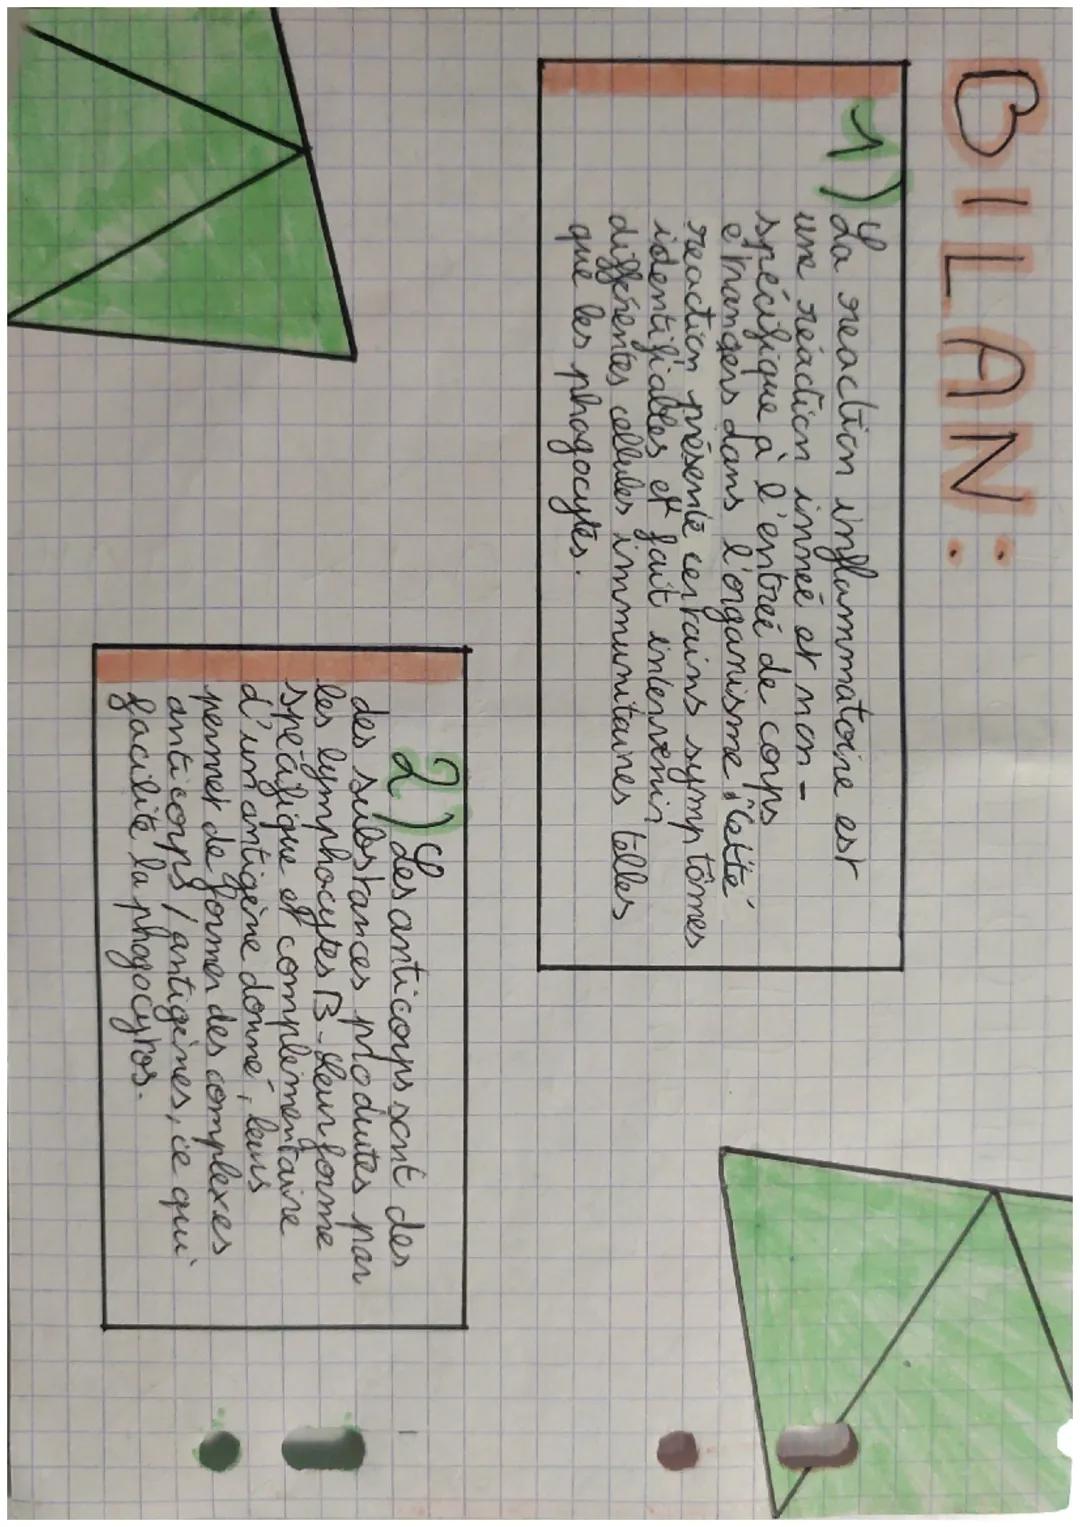 BILAN :
1) La reaction inflammatoire est
une réaction inneé et non-
spécifique à l'entreé de corps
étrangers dans l'organisme, cette
reaction présente certains symptômes
identifiables et fait intervenir
différentes cellules immunitaires telles
que les phagocytes.
2) Les anticorps sont des
des substances produites par
les lymphocytes B. Leur forme
spécifique et complémentaire
d'un antigène donné, leurs
permet de former des complexes
anticorps/antigènes, ce qui
facilite la phagocytos.